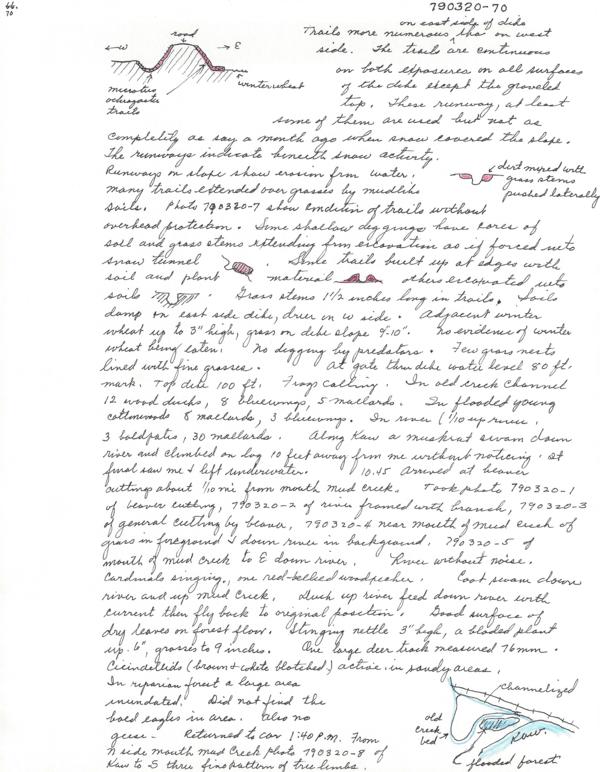 66.
70
790320-70
road
←W
→E
microtus
ochrogaster
trails
winter wheat
on east side of dike
Trails more numerous tha on west
side. The trails are continuous
on both exposures on all surfaces
of the dike except the graveled
top. These runway, at least
some of them are used but not as
completely as say a month ago when snow covered the slope.
The runways indicate beneath snow activity.
Runways on slope show erosion from water.
dirt mixed with
grass stems
pushed laterally
many trails extended over grasses by mudlike
soils. Photo 790320-7 show condition of trails without
overhead protection. Some shallow diggings have cores of
soil and grass stems extending from excavation as if forced into
snow tunnel. Some trails built up at edges with
soil and plant material others excavated into
soils. Grass stems 1 1/2 inches long in trails. Soils
damp on east side dike, drier on w side. Adjacent winter
wheat up to 3" high, grass on dike slope 4-10". No evidence of winter
wheat being eaten. No digging by predators. Few grass nests
lined with fine grasses. At gate thru dike water level 80 ft.
mark. Top dike 100 ft. Frogs calling. In old creek channel
12 wood ducks, 8 bluewings, 5 mallards. In flooded young
cottonwoods 8 mallards, 3 bluewings. In river (1/10 up river,
3 baldpates, 30 mallards. Along Kaw a muskrat swam down
river and climbed on log 10 feet away from me without noticing. At
final saw me & left underwater. 10:45 Arrived at beaver
cuttings about 1/10 mi from mouth mud creek. Took photo 790320-1
of beaver cutting, 790320-2 of river framed with branch, 790320-3
of general cutting by beaver, 790320-4 near mouth of mud creek of
grass in foreground & down river in background. 790320-5 of
mouth of mud creek to E down river. River without noise.
Cardinals singing, one red-bellied woodpecker. Coot swam down
river and up mud creek. Duck up river feed down river with
current then fly back to original position. Good surface of
dry leaves on forest floor. Stinging nettle 3" high, a bladed plant
up 6", grasses to 9 inches. One large deer track measured 76 mm.
Cicindelids (brown & white blotched) active in sandy areas.
In riparian forest a large area
inundated. Did not find the
bald eagles in area. Also no
geese - Returned to car 1:40 P.M. From
N side mouth Mud Creek photo 790320-8 of
Kaw to S thru fine pattern of tree limbs.
channelized
old
creek
bed
Kaw.
flooded forest